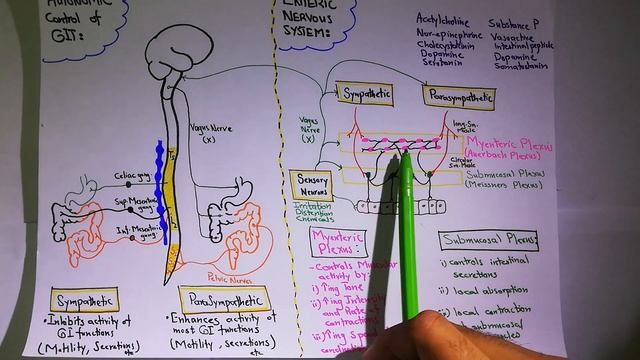 AUTONOMIC
Control of
GIT:
ENTERIC
NERVOUS
SYSTEM:
Acetylcholine
Nor-epinephrine
Cholecystokinin
Dopamine
Serotonin
Substance P
Vasoactive
Intestinal peptide
Dopamine
Somatostatin
Sympathetic
Parasympathetic
Vagus Nerve
(X)
Vagus
Nerve
(X)
long. Sm.
Muscle
Myenteric Plexus
(Auerbach Plexus)
Circular
Sm. Muscle
Submucosal Plexus
(Meissners Plexus)
Sensory
Neurons
Irritation
Distention
Chemicals
Celiac gang.
Sup. Mesenteric
gang.
Inf. Mesenteric
gang.
T5
L2
Pelvic Nerves
Sympathetic
• Inhibits activity of
GI functions
(Motility, Secretions)
etc
ParaSympathetic
• Enhances activity of
most GI functions
(Motility, secretions)
etc
Myenteric
Plexus:
- Controls Muscular
activity by:
i) ↑ing Tone
ii) ↑ing Intensity
and Rate of
contractions
iii) ↑ing
Submucosal Plexus:
i) controls intestinal
secretions
ii) local absorption
iii) local contraction
submucosal